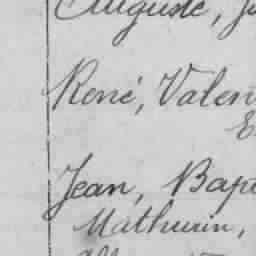 Auguste, J
René, Valen
E
Jean, Bap
Mathurin,